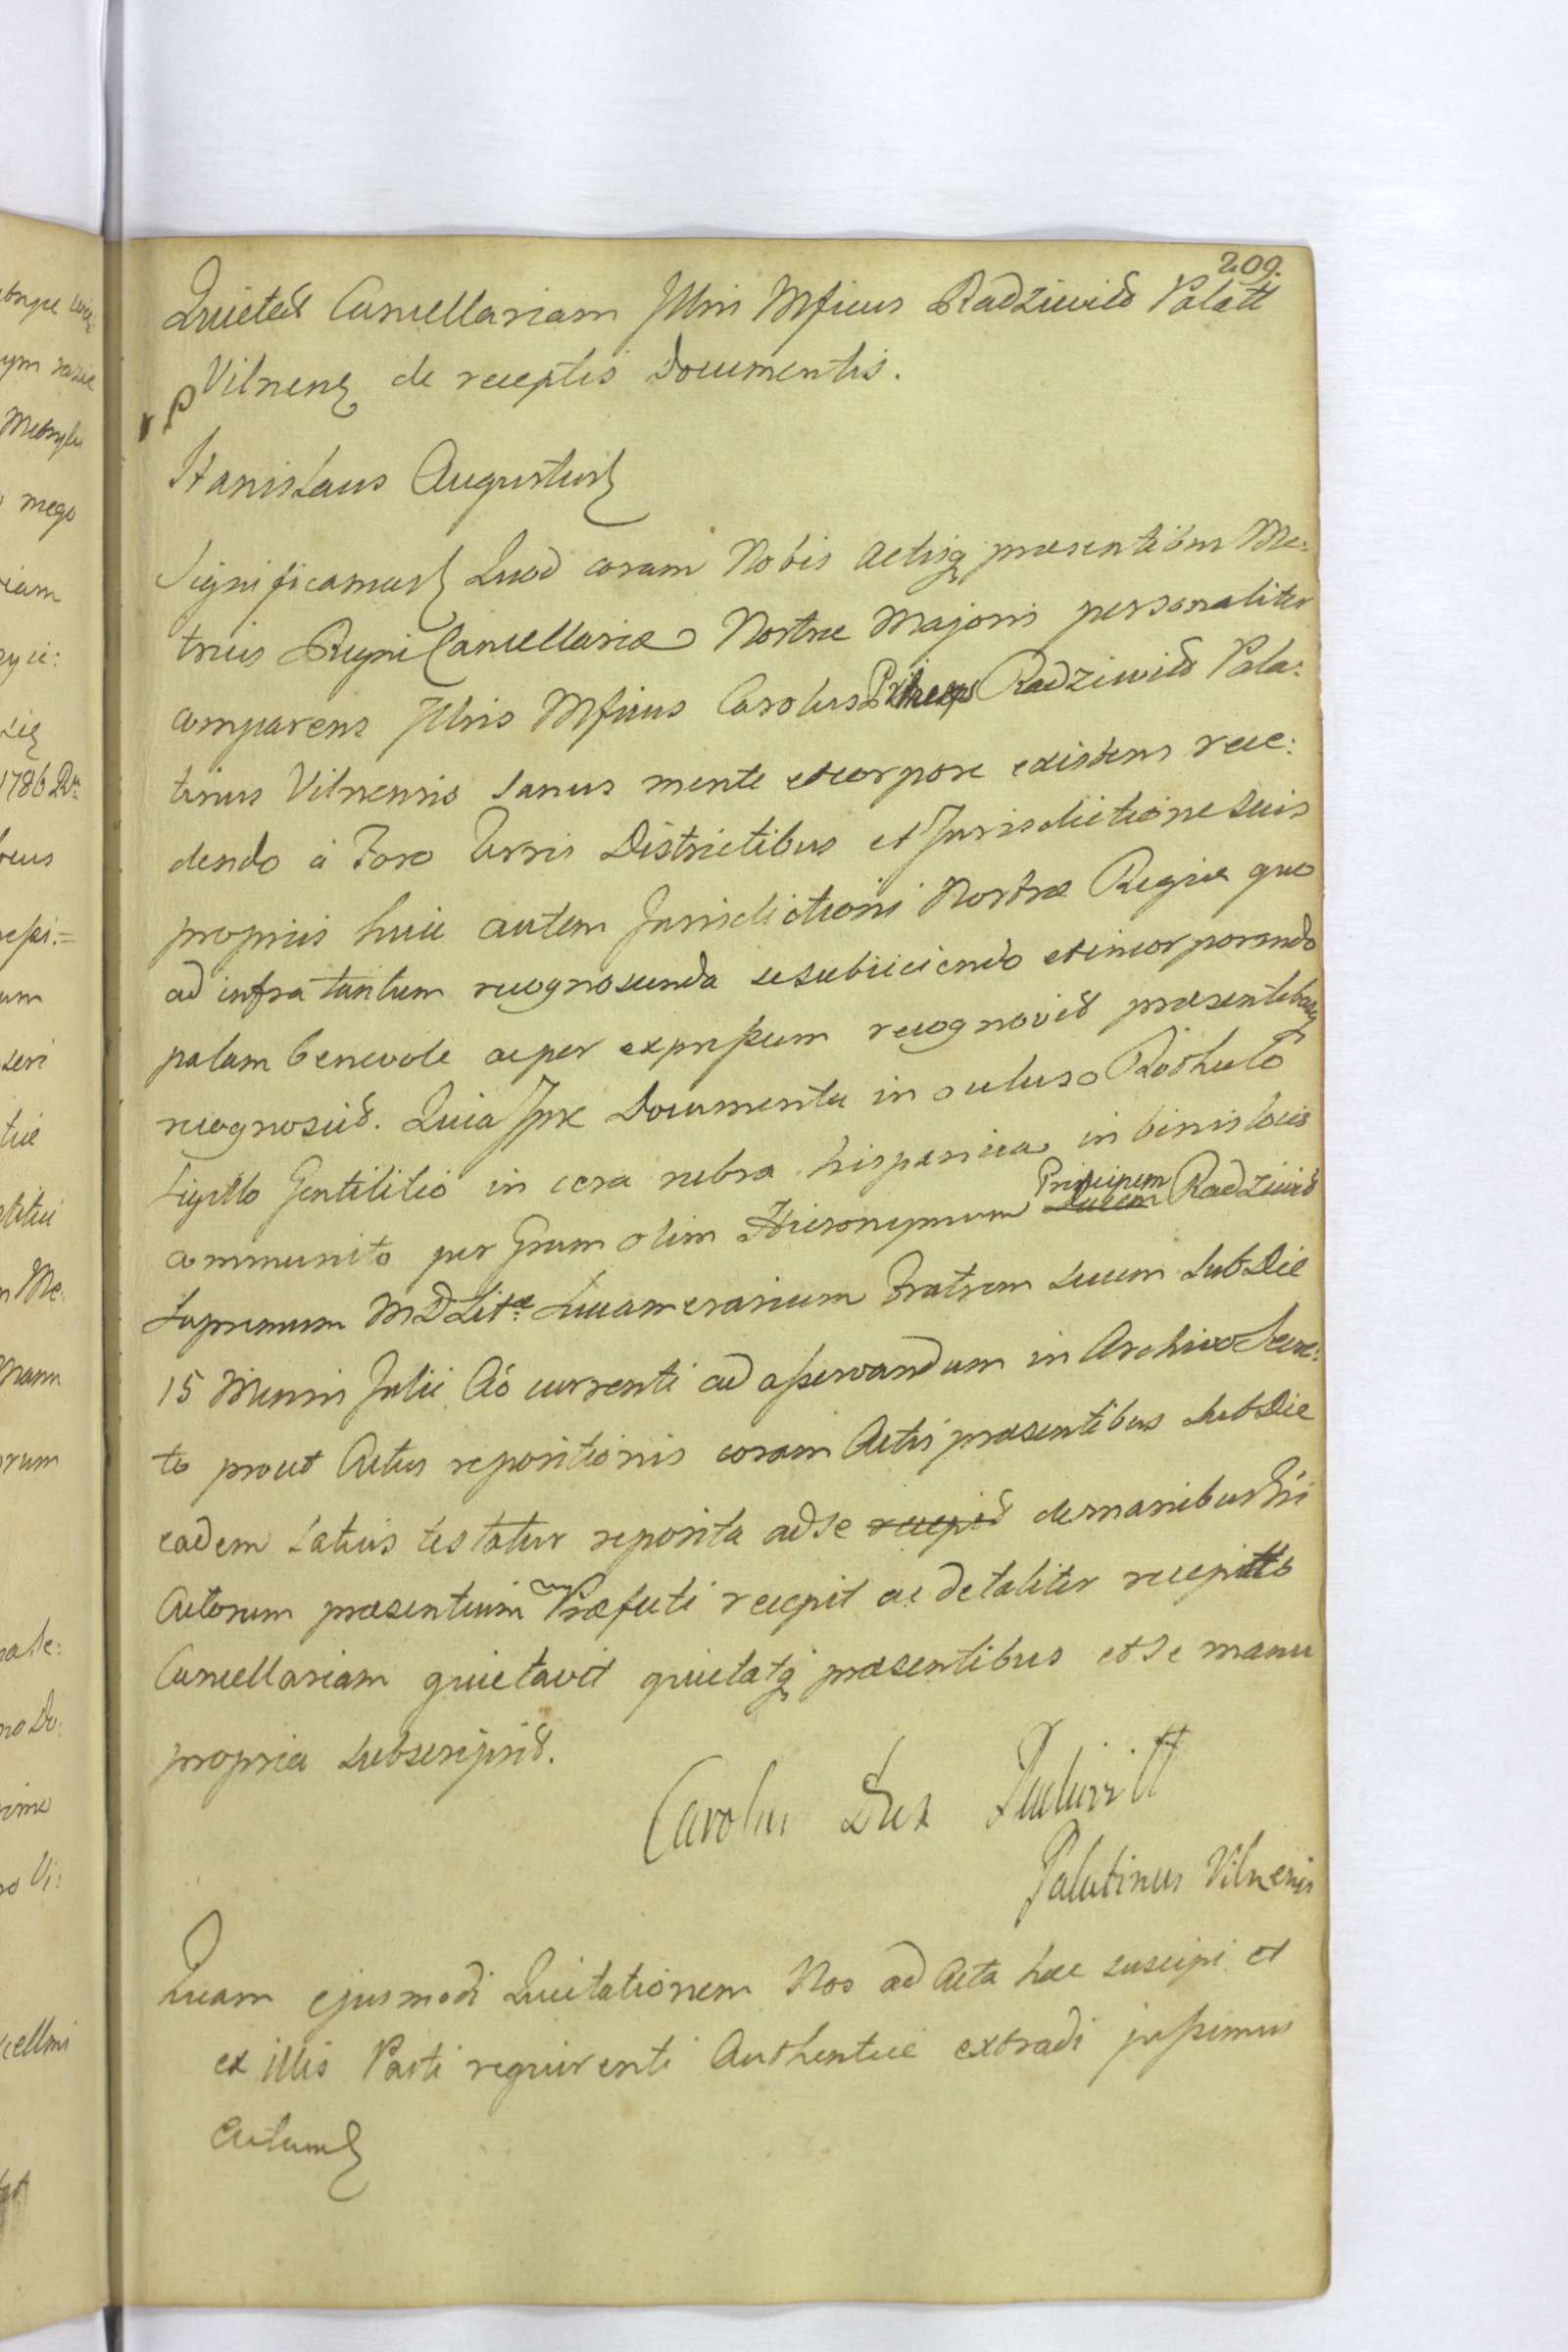 209.
Quietat Cancellariam Illris Mficus Radziwiił Palatt
Vilnens de receptis Documentis.
Stanislaus Augustus
Significamus Quod coram Nobis Actisq praesentibus Me:
tricis Regni Cancellariae Nostrae Majoris personaliter
comparens Illris Mficus Carolus Princeps Radziwiłł Pala:
tinus Vilnensis sanus mente et corpore existens rece:
dendo à Foro Terris Districtibus et Jurisdictione suis
propriis huic autem Jurisdictioni Nostrae Regiae quo
ad infra tantum recognoscenda se subiiciendo et incorporando
palam benevole ac per expressum recognovit praesentibusq
recognoscit. Quia Ipse Documenta in ocluso Rothulo
Sigillo Gentilitio in cera rubra hispanica in binis locis
communito per Grum olim Hieronymum Ducem Principem Radziwił
Supremum M D Litae Succamerarium Fratrem suum sub Die
15 Mensis Julii Ao currenti ad asservandum in Archivo Secre:
to prout Actus repositionis coram Actis praesentibus sub Die
eadem latius testatur reposita ad se recepit de manibus
Actorum praesentium Praefecti recepit ac de taliter receptis
Cancellariam quietavit quietatq praesentibus et se manu
propria subscripsit.
Carolus Dux Radziwill
Palatinus Vilnensis
Quam ejusmodi Quietationem Nos ad Acta haec suscipi et
ex illis Parti requirenti Authentice extradi jussimus
Actum